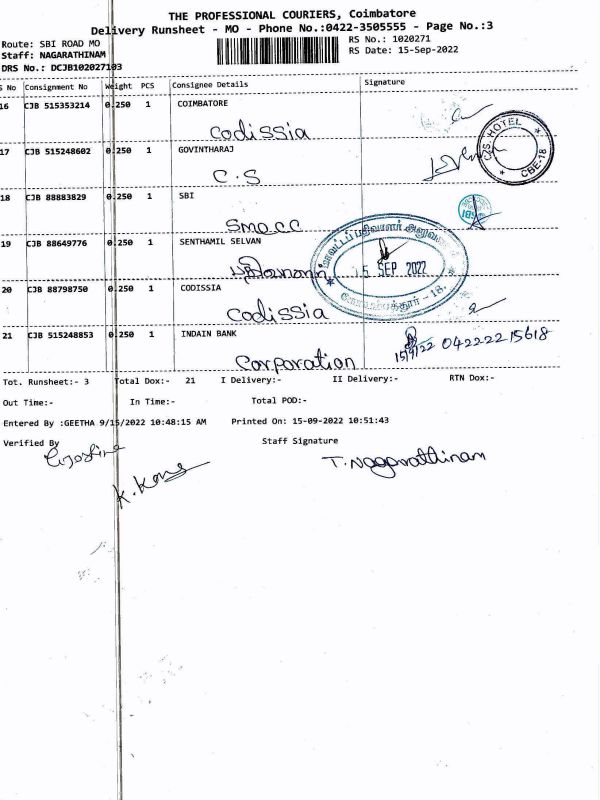 THE PROFESSIONAL COURIERS, Coimbatore
Delivery Runsheet - MO - Phone No.:0422-3505555 - Page No.:3
Route: SBI ROAD MO
RS No.: 1020271
Staff: NAGARATHINAM
RS Date: 15-Sep-2022
DRS No.: DCJB102027103
S No Consignment No Weight PCS Consignee Details Signature
16 CJB 515353214 0.250 1 COIMBATORE
Codissia
C.S. HOTEL
CBE-18
17 CJB 515248602 0.250 1 GOVINTHARAJ
C.S
18 CJB 88883829 0.250 1 SBI
SBI
19 CJB 88649776 0.250 1 SENTHAMIL SELVAN
15 SEP 2022
20 CJB 88798750 0.250 1 CODISSIA
Codissia
21 CJB 515248853 0.250 1 INDAIN BANK
15/9/22 04222215618
Corporation
Tot. Runsheet:- 3 Total Dox:- 21 I Delivery:- II Delivery:- RTN Dox:-
Out Time:- In Time:- Total POD:-
Entered By :GEETHA 9/15/2022 10:48:15 AM Printed On: 15-09-2022 10:51:43
Verified By Staff Signature
T. Nagarathinam